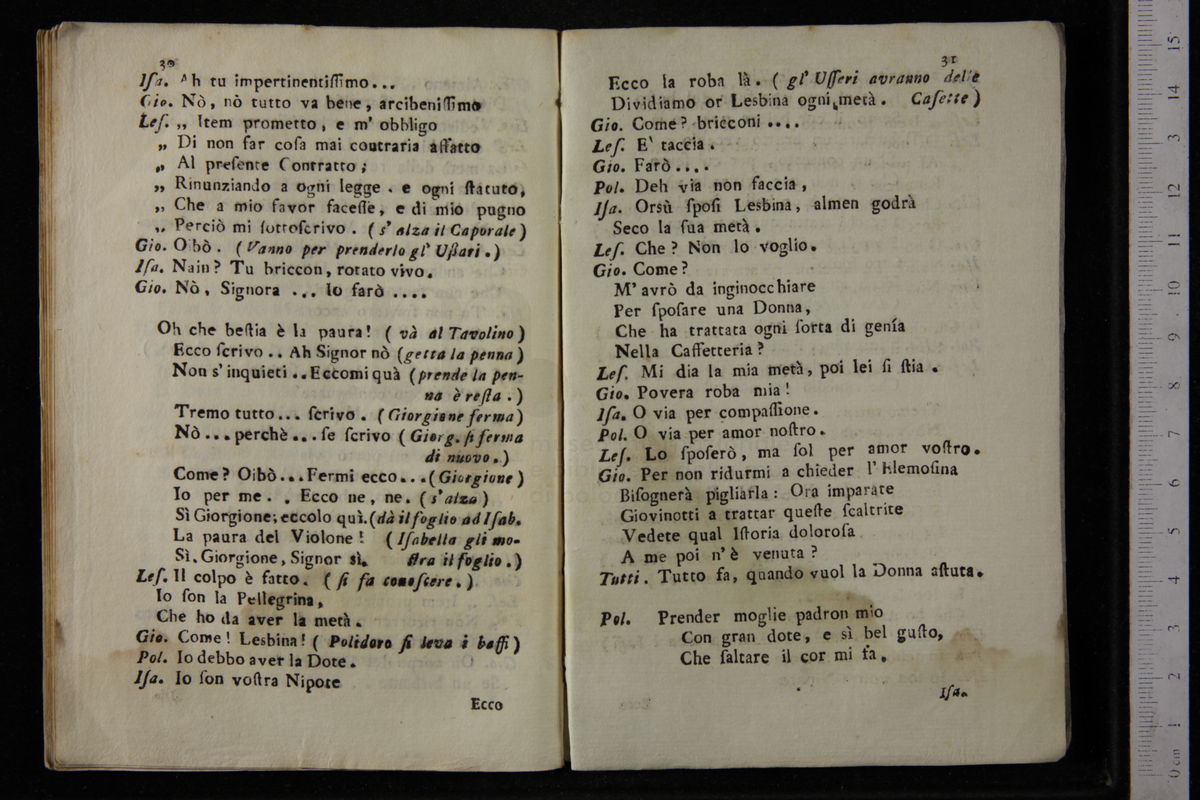 30
Iſa. Ah tu impertinentiſſimo...
Gio. Nò, nò tutto va bene, arcibeniſſimo
Leſ. „ Item prometto, e m' obbligo
„ Di non far coſa mai contraria affatto
„ Al preſente Contratto;
„ Rinunziando a ogni legge. e ogni ſtatuto,
„ Che a mio favor faceſſe, e di mio pugno
„ Perciò mi ſottoſcrivo. (s' alza il Caporale)
Gio. Obò. (Vanno per prenderlo gl' Uſſari.)
Iſa. Nain? Tu briccon, rotato vivo.
Gio. Nò, Signora ... lo farò ....
Oh che beſtia è la paura! (và al Tavolino)
Ecco ſcrivo .. Ah Signor nò (getta la penna)
Non s' inquieti .. Eccomi quà (prende la pen-
na è reſta.)
Tremo tutto... ſcrivo. (Giorgione ferma)
Nò... perchè... ſe ſcrivo (Giorg. ſi ferma
di nuovo.)
Come? Oibò... Fermi ecco... (Giorgione)
Io per me. . Ecco ne, ne. (s' alza)
Sì Giorgione; eccolo quì. (dà il foglio ad Iſab.
La paura del Violone! (Iſabella gli mo-
Sì, Giorgione, Signor sì. ſtra il foglio.)
Leſ. Il colpo è fatto. (ſi fa conoſcere.)
Io ſon la Pellegrina,
Che ho da aver la metà.
Gio. Come! Lesbina! (Polidoro ſi leva i baffi)
Pol. Io debbo aver la Dote.
Iſa. Io ſon voſtra Nipote
Ecco
31
Ecco la roba là. (gl' Uſſeri avranno delle
Dividiamo or Lesbina ogni metà. Caſette)
Gio. Come? bricconi ....
Leſ. E' taccia.
Gio. Farò....
Pol. Deh via non faccia,
Iſa. Orsù ſpoſi Lesbina, almen godrà
Seco la ſua metà.
Leſ. Che? Non lo voglio.
Gio. Come?
M' avrò da inginocchiare
Per ſpoſare una Donna,
Che ha trattata ogni ſorta di genía
Nella Caffetteria?
Leſ. Mi dia la mia metà, poi lei ſi ſtia.
Gio. Povera roba mia!
Iſa. O via per compaſſione.
Pol. O via per amor noſtro.
Leſ. Lo ſpoſerò, ma ſol per amor voſtro.
Gio. Per non ridurmi a chieder l' Elemoſina
Biſognerà pigliarla: Ora imparate
Giovinotti a trattar queſte ſcaltrite
Vedete qual Iſtoria doloroſa
A me poi n' è venuta?
Tutti. Tutto fa, quando vuol la Donna aſtuta.
Pol. Prender moglie padron mio
Con gran dote, e sì bel guſto,
Che ſaltare il cor mi fa.
Iſa.
0 cm 1 2 3 4 5 6 7 8 9 10 11 12 13 14 15